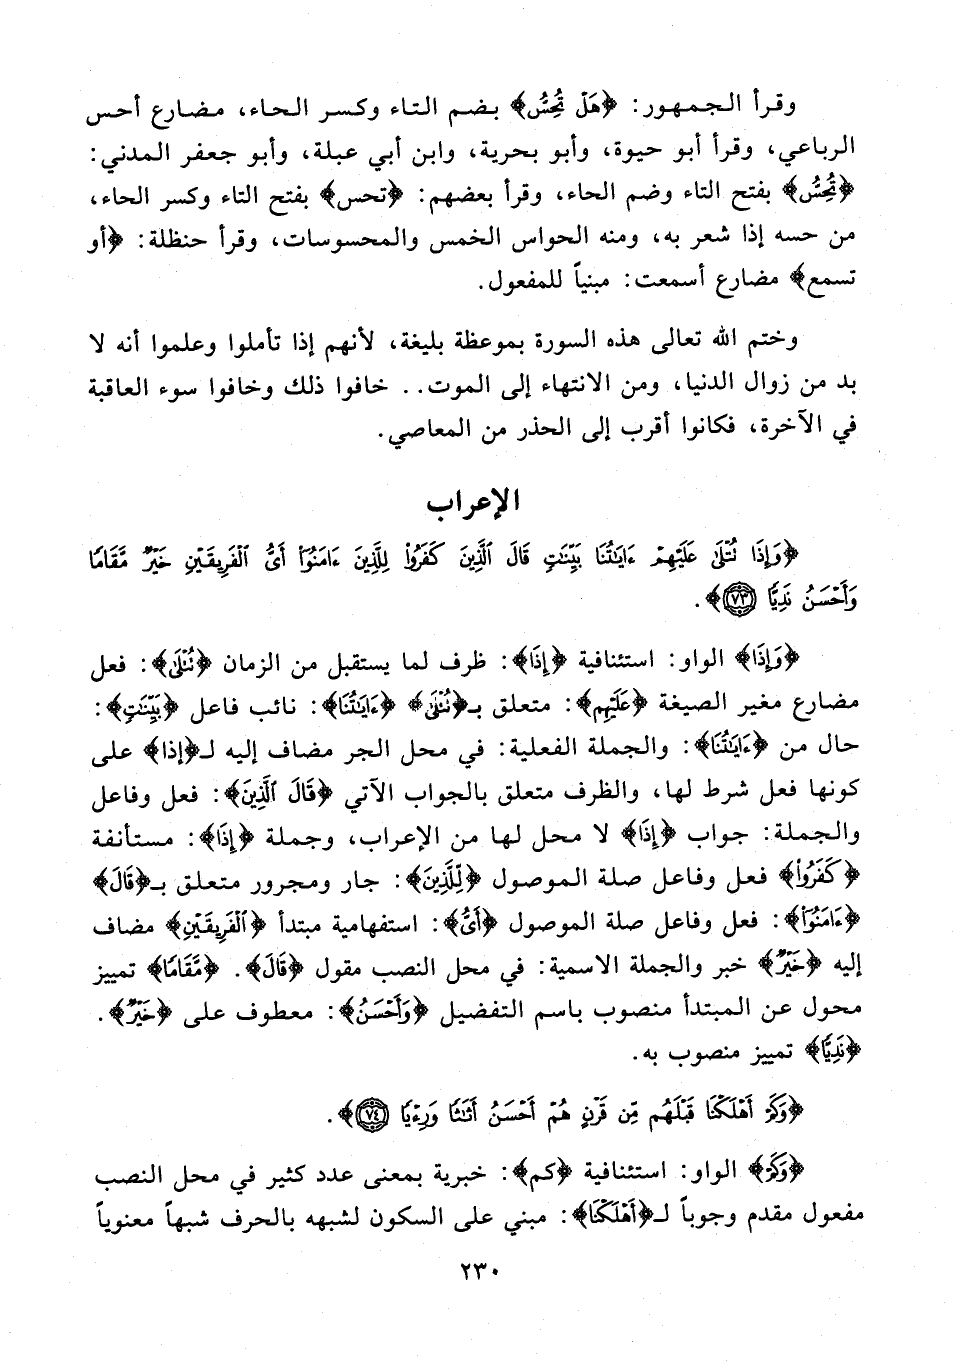 وقرأ الجمهور: ﴿هَلْ تُحِسُّ﴾ بضم التاء وكسر الحاء، مضارع أحس
الرباعي، وقرأ أبو حيوة، وأبو بحرية، وابن أبي عبلة، وأبو جعفر المدني:
﴿تَحُسُّ﴾ بفتح التاء وضم الحاء، وقرأ بعضهم: ﴿تحس﴾ بفتح التاء وكسر الحاء،
من حسه إذا شعر به، ومنه الحواس الخمس والمحسوسات، وقرأ حنظلة: ﴿أو
تسمع﴾ مضارع أسمعت: مبنياً للمفعول.
وختم الله تعالى هذه السورة بموعظة بليغة، لأنهم إذا تأملوا وعلموا أنه لا
بد من زوال الدنيا، ومن الانتهاء إلى الموت.. خافوا ذلك وخافوا سوء العاقبة
في الآخرة، فكانوا أقرب إلى الحذر من المعاصي.
الإعراب
﴿وَإِذَا تُتْلَىٰ عَلَيْهِمْ ءَايَٰتُنَا بَيِّنَٰتٍ قَالَ ٱلَّذِينَ كَفَرُوا۟ لِلَّذِينَ ءَامَنُوٓا۟ أَىُّ ٱلْفَرِيقَيْنِ خَيْرٌ مَّقَامًا
وَأَحْسَنُ نَدِيًّا ٧٣﴾.
﴿وَإِذَا﴾ الواو: استئنافية ﴿إِذَا﴾: ظرف لما يستقبل من الزمان ﴿تُتْلَىٰ﴾: فعل
مضارع مغير الصيغة ﴿عَلَيْهِمْ﴾: متعلق بـ﴿تُتْلَىٰ﴾ ﴿ءَايَٰتُنَا﴾: نائب فاعل ﴿بَيِّنَٰتٍ﴾:
حال من ﴿ءَايَٰتُنَا﴾: والجملة الفعلية: في محل الجر مضاف إليه لـ﴿إذا﴾ على
كونها فعل شرط لها، والظرف متعلق بالجواب الآتي ﴿قَالَ ٱلَّذِينَ﴾: فعل وفاعل
والجملة: جواب ﴿إِذَا﴾ لا محل لها من الإعراب، وجملة ﴿إِذَا﴾: مستأنفة
﴿كَفَرُوا۟﴾ فعل وفاعل صلة الموصول ﴿لِلَّذِينَ﴾: جار ومجرور متعلق بـ﴿قَالَ﴾
﴿ءَامَنُوٓا۟﴾: فعل وفاعل صلة الموصول ﴿أَىُّ﴾: استفهامية مبتدأ ﴿ٱلْفَرِيقَيْنِ﴾ مضاف
إليه ﴿خَيْرٌ﴾ خبر والجملة الاسمية: في محل النصب مقول ﴿قَالَ﴾. ﴿مَّقَامًا﴾ تمييز
محول عن المبتدأ منصوب باسم التفضيل ﴿وَأَحْسَنُ﴾: معطوف على ﴿خَيْرٌ﴾.
﴿نَدِيًّا﴾ تمييز منصوب به.
﴿وَكَمْ أَهْلَكْنَا قَبْلَهُم مِّن قَرْنٍ هُمْ أَحْسَنُ أَثَٰثًا وَرِءْيًا ٧٤﴾.
﴿وَكَمْ﴾ الواو: استئنافية ﴿كم﴾: خبرية بمعنى عدد كثير في محل النصب
مفعول مقدم وجوباً لـ﴿أَهْلَكْنَا﴾: مبني على السكون لشبهه بالحرف شبهاً معنوياً
٢٣٠